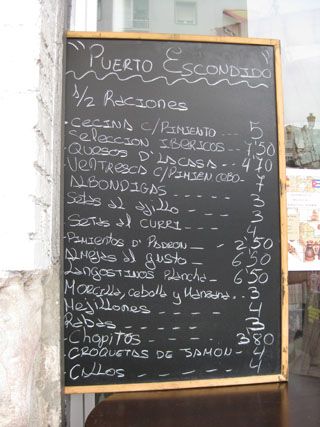 PUERTO ESCONDIDO
1/2 RACIONES
CECINA C/PIMIENTO --- 5
SELECCION IBERICOS -- 7'50
QUESOS D' LA CASA -- 4'70
VENTRESCA C/PIMIEN CEBO. 7
ALBONDIGAS - - - - 3
SETAS AL AJILLO - - - - 3
SETAS AL CURRI - - - - 4
PIMIENTOS D' PADRON - - 2'50
ALMEJAS AL GUSTO - - 6'50
LANGOSTINOS PLANCHA - 6'50
MORCILLA, CEBOLLA Y MANZANA . . 3
MEJILLONES - - - - 4
RABAS - - - - 3
CHOPITOS - - - - 3'80
CROQUETAS DE JAMON - - 4
CALLOS - - - - 4